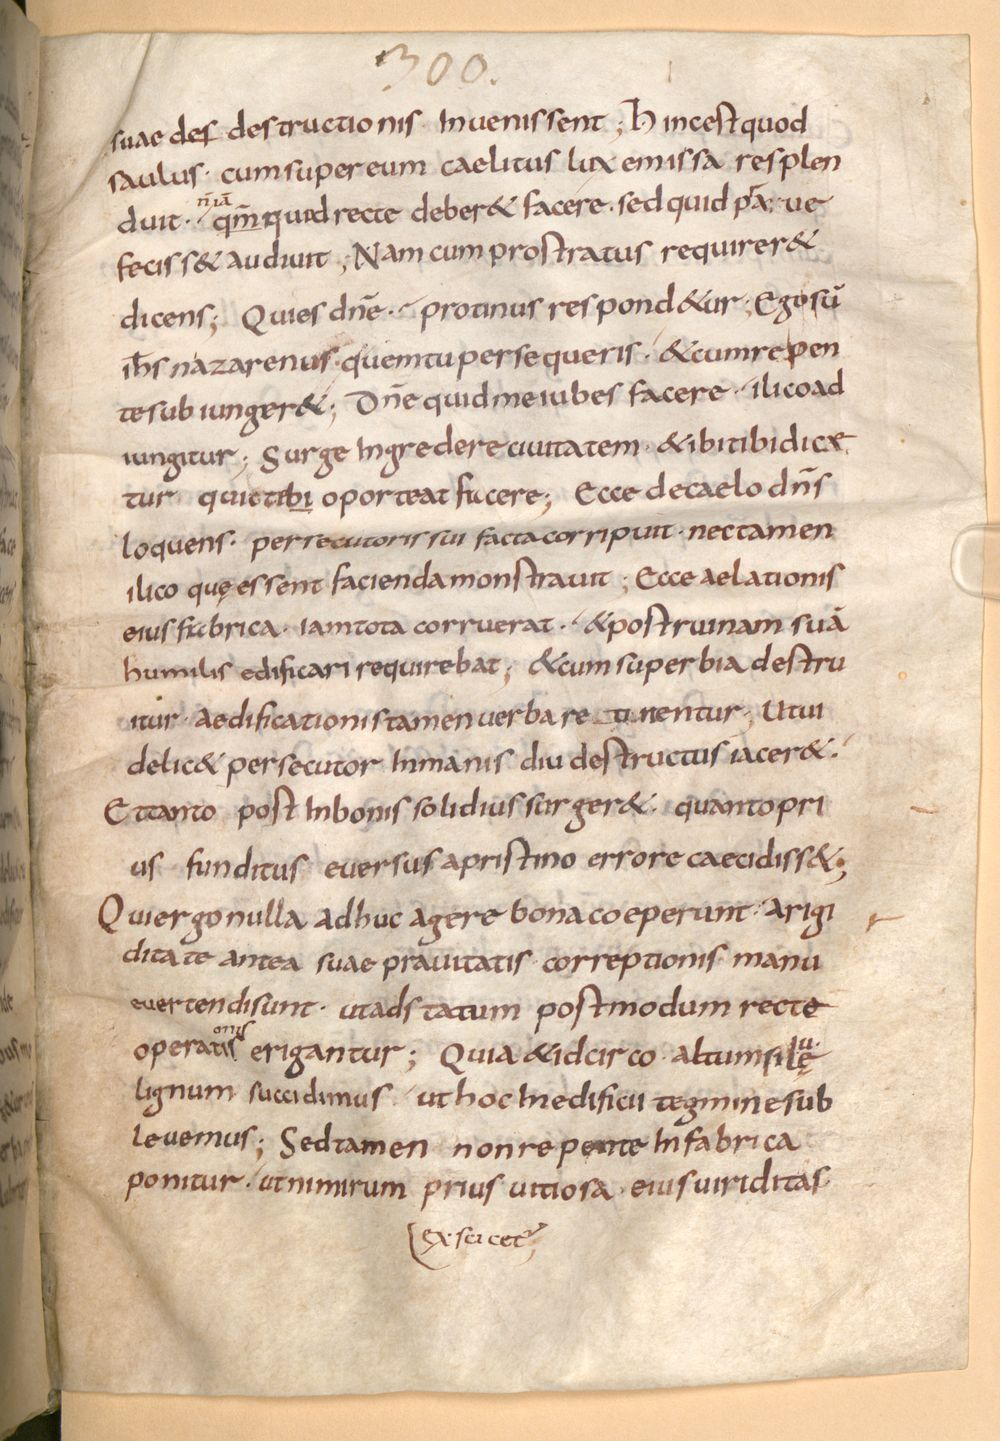 300.
suae des destructionis Inuenissent; Hincest quod
saulus· cum super eum caelitus lux emissa resplen
duit· qm̄ quid recte deber& facere· sed quid praue
feciss& audiuit; Nam cum prostratus requirer&
dicens; Quies dn̄e· Protinus respond&ur; Ego sū
ih̄s nazarenus· quem tu persequeris· &cum repen
te subiunger&; Dn̄e quid me iubes facere· ilico ad
iungitur; Surge Ingredere ciuitatem· & ibi tibi dice
tur qui& tibi oporteat facere; Ecce de caelo dn̄s
loquens· persecutoris sui facta corripuit· nec tamen
ilico quę essent facienda monstrauit; Ecce aelationis
eius fabrica· iam tota corruerat· & post ruinam suā
humilis edificari requirebat; & cum superbia destru
itur· aedificationis tamen uerba retinentur; Utui
delic& persecutor Inmanis diu destructus iacer&·
Et tanto post Inbonis solidius surger&· quanto pri
us funditus euersus a pristino errore caecidiss&;
Qui ergo nulla adhuc agere bona coeperunt· a rigi
ditate antea suae prauitatis correptionis manu
euertendi sunt· ut ad statum postmodum recte
operationis erigantur; Quia & idcirco altum siluę
lignum succidimus· ut hoc In edificii tegmine sub
leuemus; Sed tamen non repente In fabrica
ponitur· ut nimirum prius uitiosa eius uiriditas
exsiccet